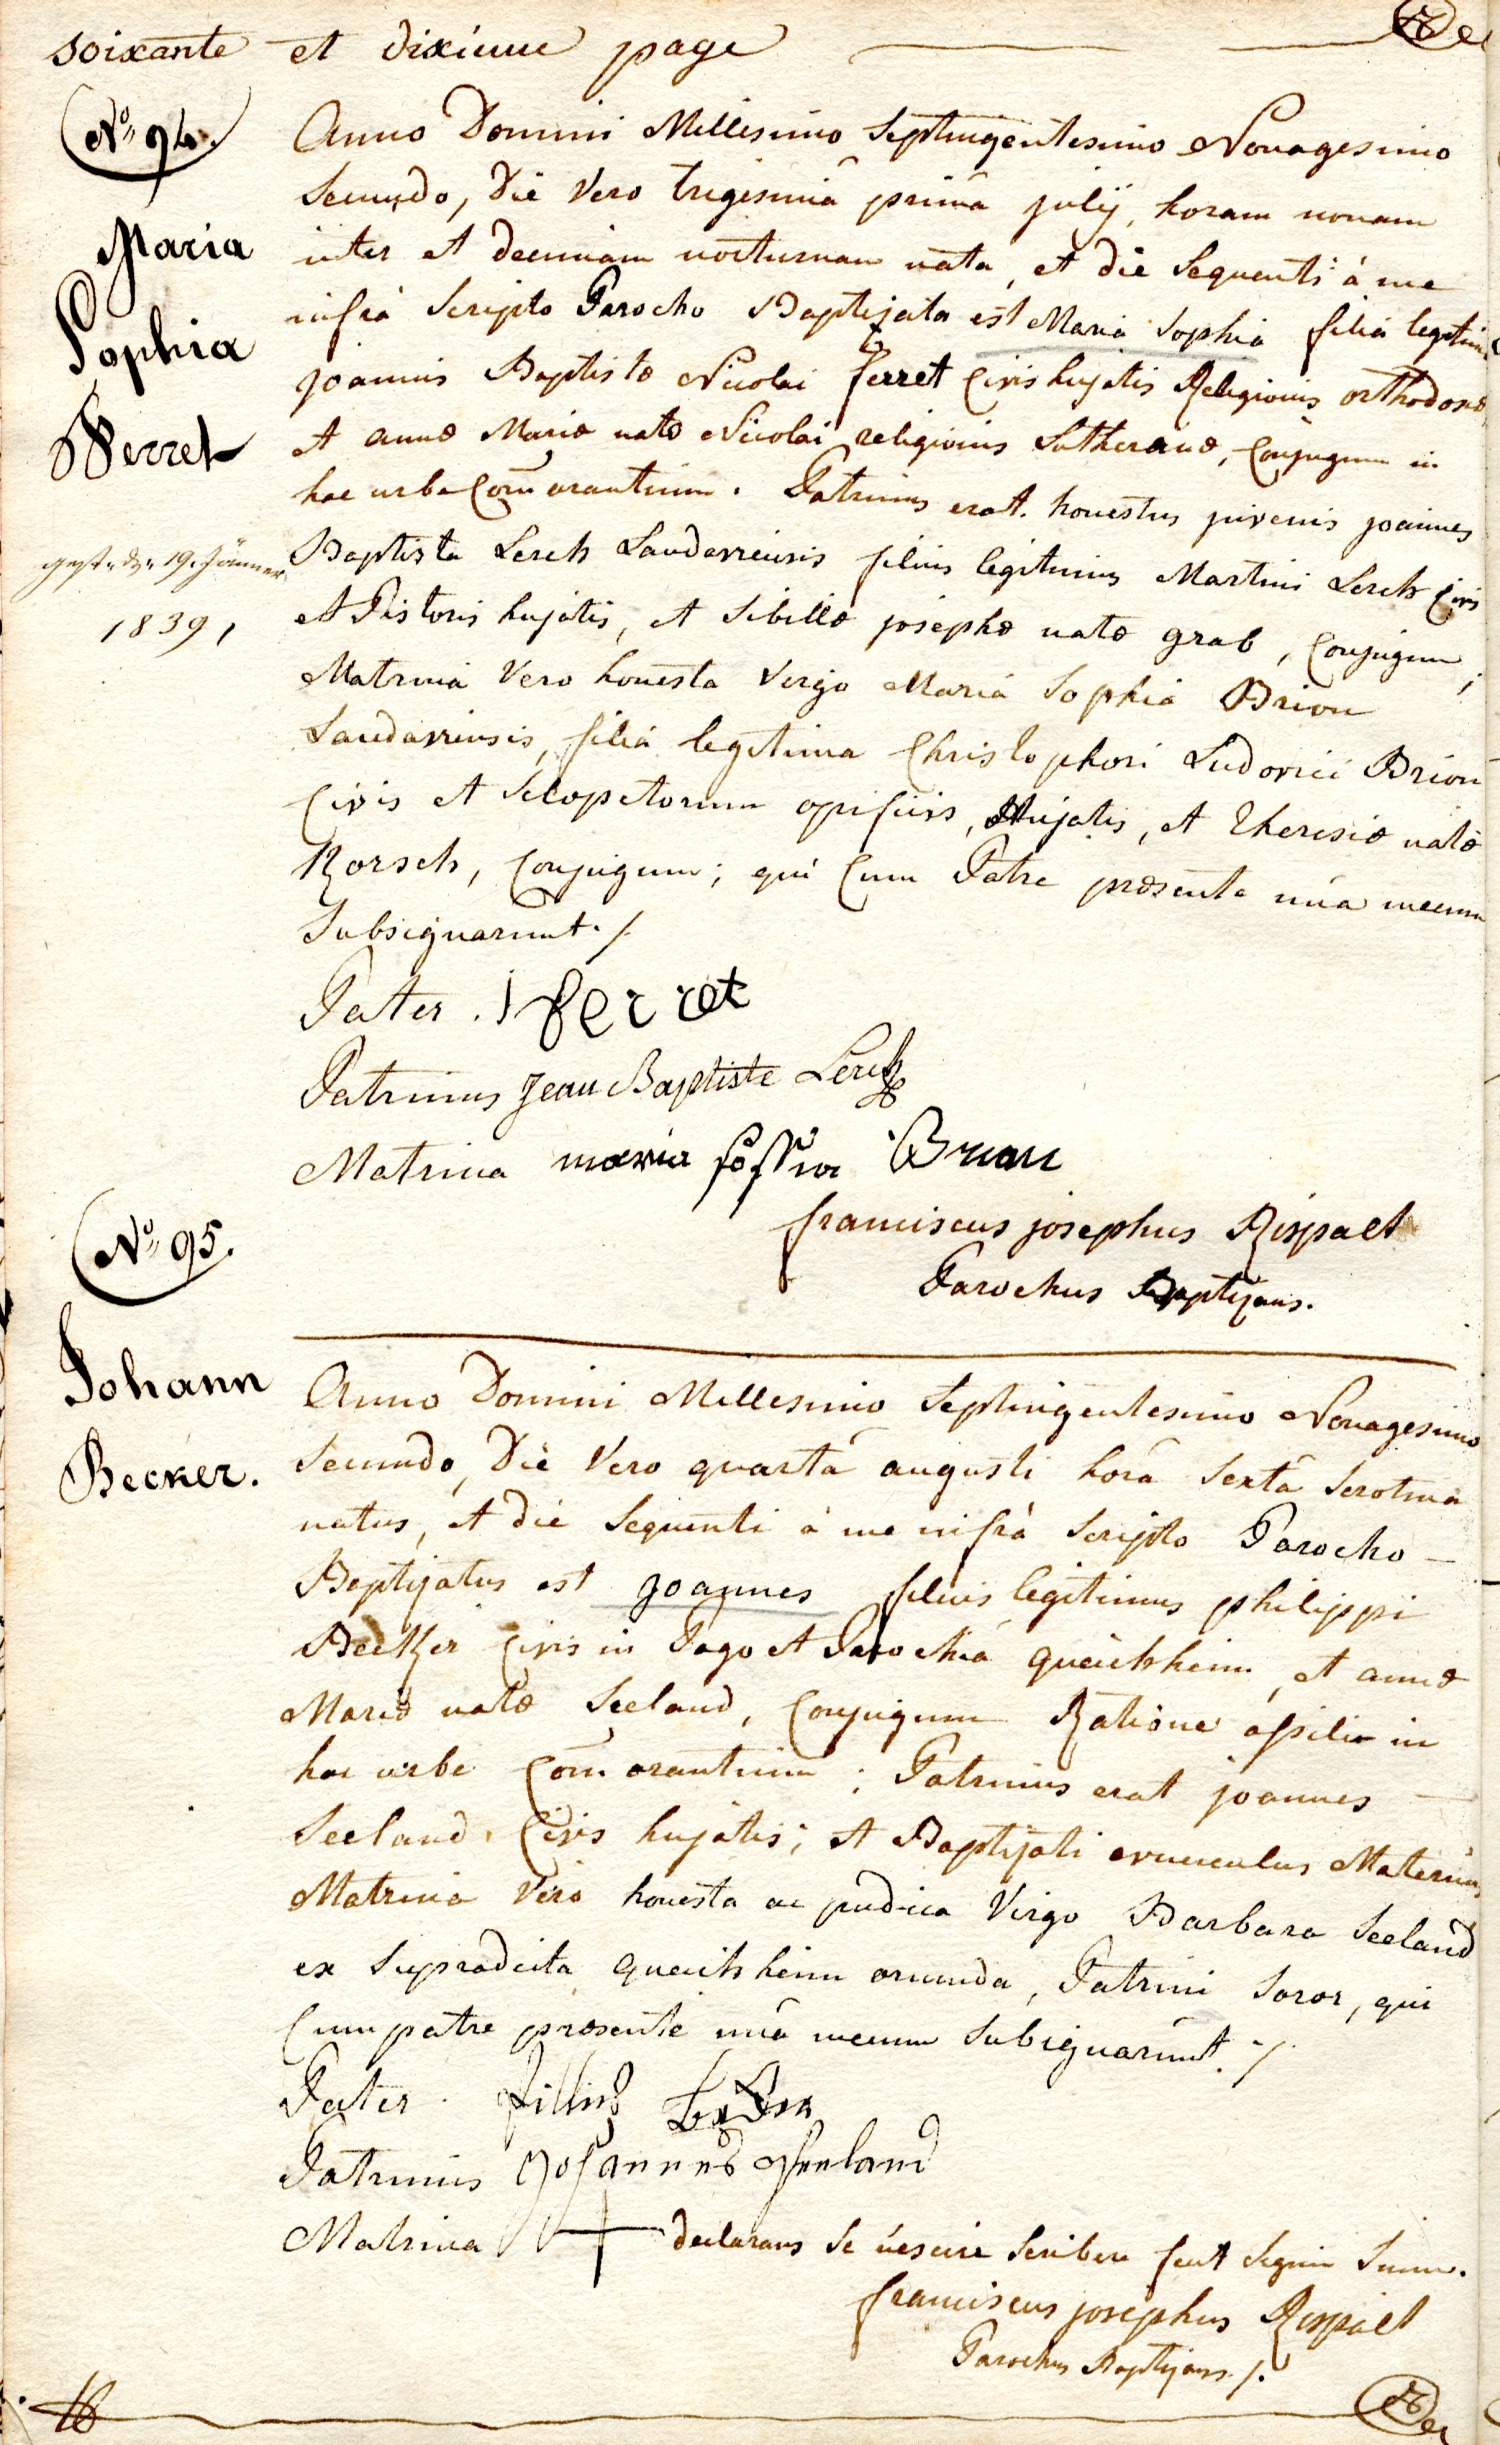 soixante et dixieme page
No 94.
Maria
Sophia
Ferret
gest. d. 19. Jänner
1839,
Anno Domini Millesimo Septingentesimo Nonagesimo
Secundo, Die Vero trigesimâ primâ julij, horam nonam
inter et decimam nocturnam nata, et die Sequenti à me
infrà Scripto Parocho Baptizata est Maria Sophia filia legitima
joannis Baptistæ Nicolai ferret Civis hujatis Religionis orthodoxæ
et annæ Mariæ natæ Nicolai religionis Lutheranæ, Conjugum in
hac urbe Com̄orantium. Patrinus erat honestus juvenis joannes
Baptista Lerch Landaviensis filius legitimus Martini Lerch Civis
et Pistoris hujatis, et Sibillæ josephæ natæ grab, Conjugum;
Matrina Vero honesta Virgo Maria Sophia Brion
Landaviensis, filia legitima Christophori Ludovici Brion
Civis et Sclopetorum opificis, Hujatis, et Theresiæ natæ
Korsch, Conjugum; qui Cum Patre præsente unà mecum
Subsignarunt./.
Pater. J ferret
Patrinus Jean Baptiste Lerch
Matrina maria soffia Brion
franciscus josephus Rispalt
Parochus Baptizans.
No 95.
Johann
Becker.
Anno Domini Millesimo Septingentesimo Nonagesimo
Secundo, Die Vero quartâ augusti horâ Sextâ Serotinâ
natus, et die Sequenti à me infrà Scripto Parocho
Baptizatus est joannes filius legitimus philippi
Becker Civis in Pago et Parochiâ queichheim, et annæ
Mariæ natæ Seeland, Conjugum Ratione assilii in
hac urbe Com̄orantium; Patrinus erat joannes
Seeland Civis hujatis; et Baptizati avunculus Maternus
Matrina Vero honesta ac pudica Virgo Barbara Seeland
ex Supradicta queichheim oriunda, Patrini Soror, qui
Cum patre præsente unà mecum Subsignarunt./.
Pater.
Patrinus Johannes Seeland
Matrina + declarans Se nescire Scribere fecit Signum Suum.
franciscus josephus Rispalt
Parochus Baptizans./.